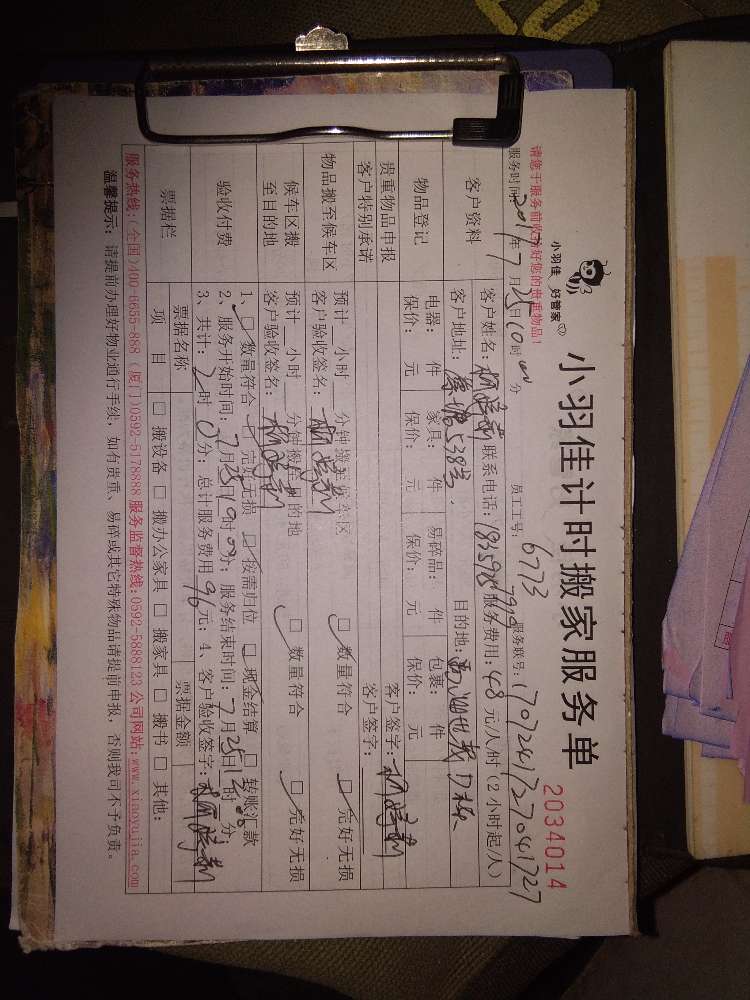 小羽佳 好管家
小羽佳计时搬家服务单
2034014
请您于服务前收拾好您的贵重物品!
服务时间: 2017年7月25日10时00分 员工工号: 6773 服务联号: 1707241727041727
客户资料 客户姓名: 联系电话: 服务费用: 48元/人/时(2小时起/人)
客户地址: 538号 目的地:
物品登记 电器: 件 家具: 件 易碎品: 件 包裹: 件
保价: 元 保价: 元 保价: 元 保价: 元
贵重物品申报 客户签字:
客户特别承诺 客户签字:
物品搬至候车区 预计 小时 分钟搬至候车区
客户验收签名: 数量符合 完好无损
候车区搬至目的地 预计 小时 分钟搬至目的地
客户验收签名: 数量符合 完好无损
验收付费 1、数量符合 完好无损 按需归位 现金结算 转账汇款
2、服务开始时间: 7月25日10时00分; 服务结束时间: 7月25日12时00分;
3、共计: 2时0分; 总计服务费用96元; 4、客户验收签字:
票据栏 票据名称 票据金额
项目 搬设备 搬办公家具 搬家具 搬书 其他:
服务热线:(全国)400-6655-888 (厦门)0592-5178888 服务监督热线:0592-5888123 公司网站:www.xiaoyujia.com
温馨提示: 请提前办理好物业通行手续, 如有贵重、易碎或其它特殊物品请提前申报, 否则我司不予负责。